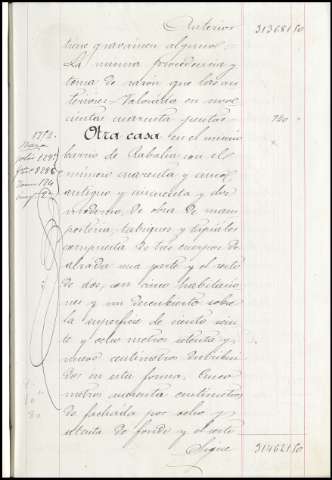 Anterior 313681,50
tiene gravámen alguno.
La misma procedencia y
toma de razon que las an
teriores. Valorada en nove
cientas cuarenta pesetas. 940
Otra casa en el mismo
barrio de Rabalia con el
número cuarenta y cinco
antiguo y cincuenta y dos
moderno, de obra de mam
postería, tabiques y tapiales
compuesta de tres cuerpos de
alzada una parte y el resto
de dos, con cinco habitacio
nes y un descubierto sobre
la superficie de ciento vein
te y ocho metros setenta y
nueve centímetros distribui
dos en esta forma. Cinco
metros cuarenta centímetros
de fachada por ocho y
setenta de fondo y el resto
Sigue 314621,50